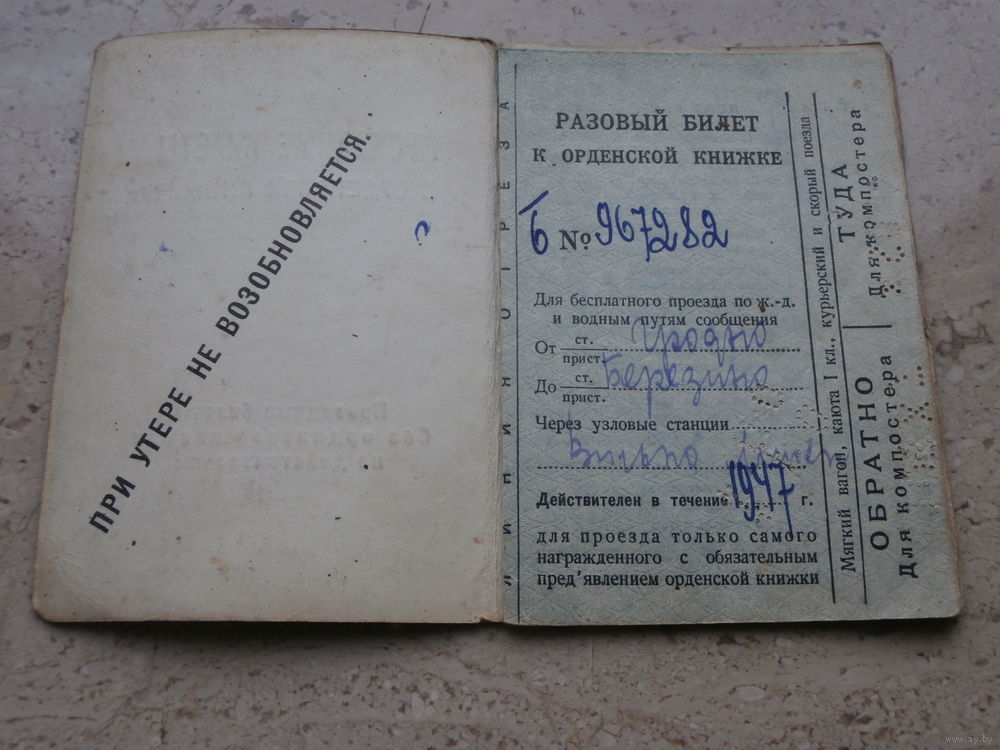 ПРИ УТЕРЕ НЕ ВОЗОБНОВЛЯЕТСЯ.
ЛИНИЯ ОТРЕЗА
РАЗОВЫЙ БИЛЕТ
К ОРДЕНСКОЙ КНИЖКЕ
Б № 967282
Для бесплатного проезда по ж.-д.
и водным путям сообщения
От ст. прист. Гродно
До ст. прист. Березино
Через узловые станции
Вильно
Действителен в течение 1947 г.
для проезда только самого
награжденного с обязательным
пред'явлением орденской книжки
Мягкий вагон, каюта I кл., курьерский и скорый поезда
ТУДА
Для компостера
ОБРАТНО
Для компостера
www.ay.by